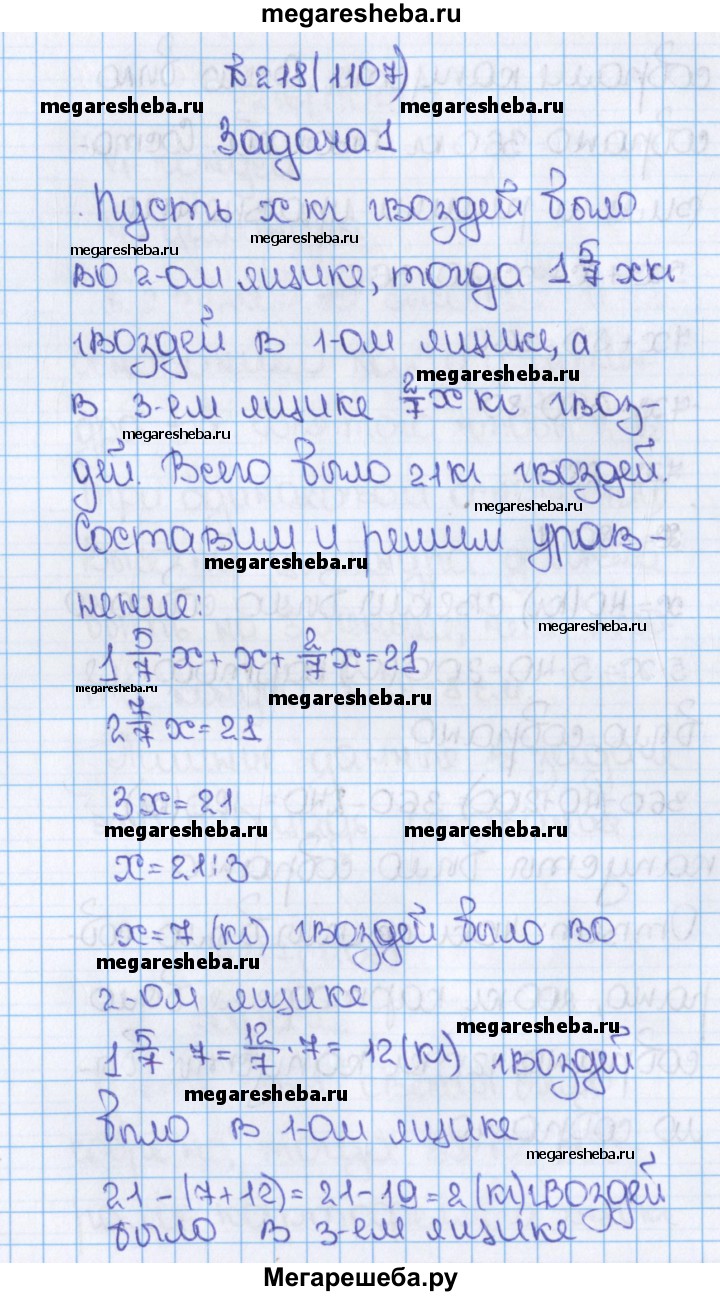 megaresheba.ru
№218(1107)
megaresheba.ru megaresheba.ru
Задача 1
Пусть x кг гвоздей было
megaresheba.ru megaresheba.ru
во 2-ом ящике, тогда 1 5/7 x кг
гвоздей в 1-ом ящике, а
megaresheba.ru
в 3-ем ящике 2/7 x кг гвоз-
megaresheba.ru
дей. Всего было 21 кг гвоздей.
megaresheba.ru
Составим и решим урав-
megaresheba.ru
нение:
megaresheba.ru
1 5/7 x + x + 2/7 x = 21
megaresheba.ru megaresheba.ru
2 7/7 x = 21
3x = 21
megaresheba.ru megaresheba.ru
x = 21:3
x = 7 (кг) гвоздей было во
megaresheba.ru
2-ом ящике
megaresheba.ru
1 5/7 · 7 = 12/7 · 7 = 12 (кг) гвоздей
megaresheba.ru
было в 1-ом ящике
megaresheba.ru
21 - (7+12) = 21-19 = 2 (кг) гвоздей
было в 3-ем ящике
Мегарешеба.ру